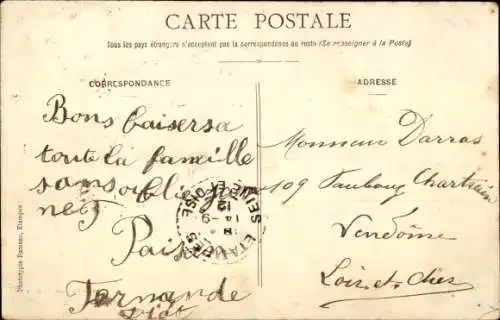 CARTE POSTALE
Tous les pays étrangers n'acceptent pas la correspondance au recto (Se renseigner à la Poste)
CORRESPONDANCE
ADRESSE
Bons baisers a
toute la famille
sans oublier
Fernande
Monsieur Darras
109 Faubourg Chartrain
Vendôme
Loir-et-Cher
ETAMPES
SEINE ET OISE
14 - 9
Phototypie Rameau, Etampes